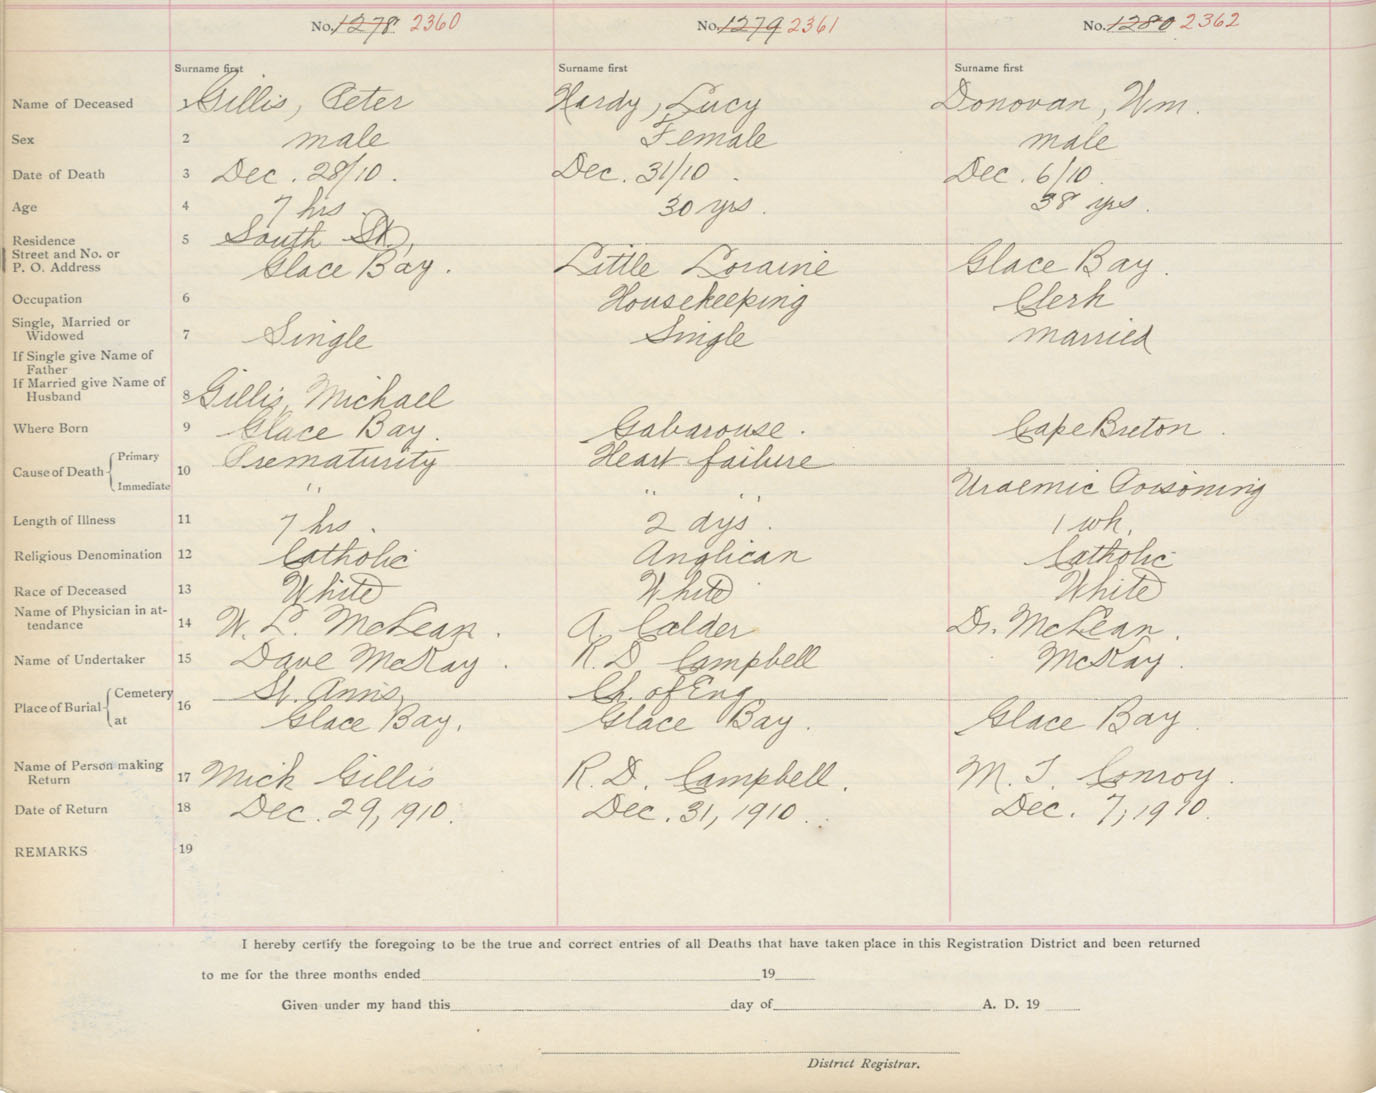 No. 1278 2360 No. 1279 2361 No. 1280 2362
Surname first Surname first Surname first
Name of Deceased 1 Gillis, Peter Hardy, Lucy Donovan, Wm.
Sex 2 male Female male
Date of Death 3 Dec. 28/10. Dec. 31/10. Dec. 6/10.
Age 4 7 hrs 30 yrs. 38 yrs.
Residence 5 South St.,
Street and No. or
P. O. Address Glace Bay. Little Loraine Glace Bay.
Occupation 6 Housekeeping Clerk
Single, Married or
Widowed 7 Single Single married
If Single give Name of
Father
If Married give Name of
Husband 8 Gillis, Michael
Where Born 9 Glace Bay. Gabarouse. Cape Breton.
Cause of Death Primary 10 Prematurity Heart failure
Immediate " " " Uraemic Poisoning
Length of Illness 11 7 hrs. 2 dys. 1 wk.
Religious Denomination 12 Catholic Anglican Catholic
Race of Deceased 13 White White White
Name of Physician in at-
tendance 14 W. L. McLean. A. Calder Dr. McLean.
Name of Undertaker 15 Dave McKay. R. D. Campbell McKay.
Place of Burial Cemetery 16 St. Anns, Ch. of Eng.
at Glace Bay. Glace Bay. Glace Bay
Name of Person making
Return 17 Mick Gillis R. D. Campbell. M. J. Conroy.
Date of Return 18 Dec. 29, 1910. Dec. 31, 1910. Dec. 7, 1910.
REMARKS 19
I hereby certify the foregoing to be the true and correct entries of all Deaths that have taken place in this Registration District and been returned
to me for the three months ended 19
Given under my hand this day of A. D. 19
District Registrar.